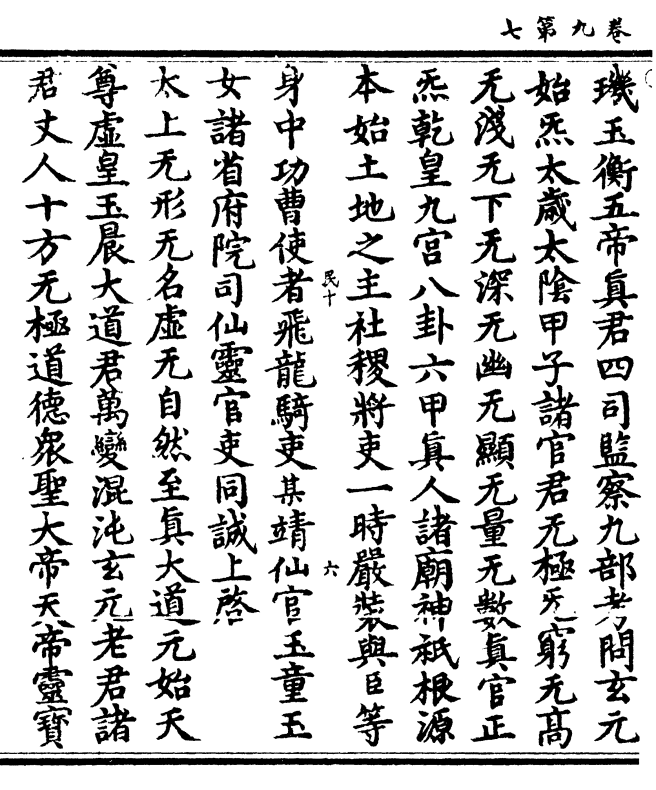 卷九第七
璣玉衡五帝真君四司監察九部考問玄元
始炁太歲太陰甲子諸官君无極无窮无高
无淺无下无深无幽无顯无量无數真官正
炁乾皇九宫八卦六甲真人諸廟神祇根源
本始土地之主社稷將吏一時嚴裝與臣等
身中功曹使者飛龍騎吏某靖仙官玉童玉
民十
六
女諸省府院司仙靈官吏同誠上啓
太上无形无名虛无自然至真大道元始天
尊虛皇玉晨大道君萬變混沌玄元老君諸
君丈人十方无極道德衆聖大帝天帝靈寶